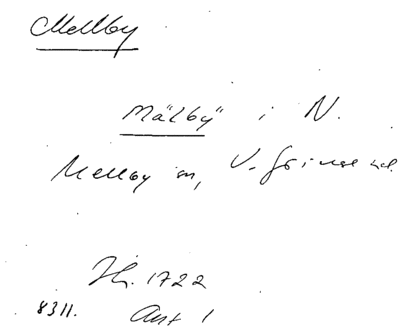 Mellby
"Mälby" i N.
Mellby sn, V. Göinge hd.
Jb. 1722
8311. Ant 1